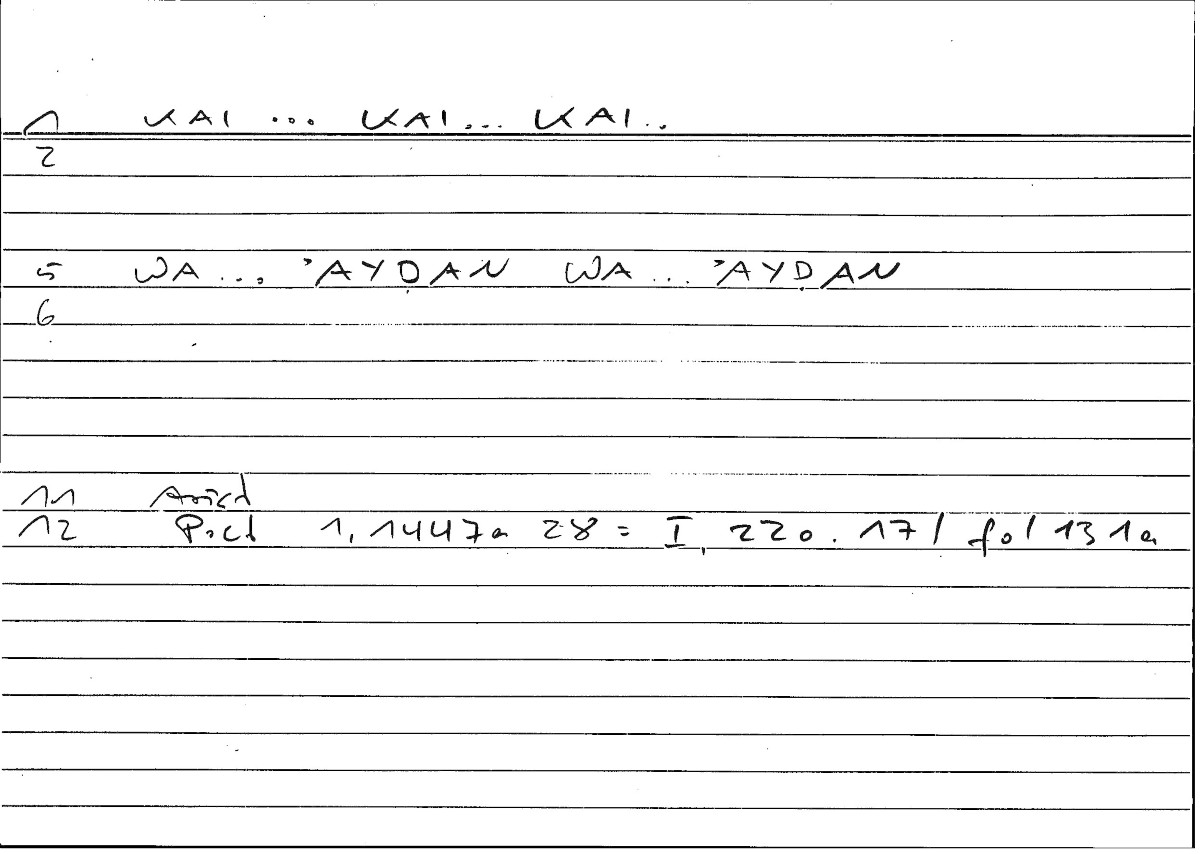 1 KAI ... KAI... KAI..
2
5 WA ... ʾAYḌAN WA ... ʾAYḌAN
6
11 Arist
12 Poet 1, 1447a 28 = I, 220. 17 / fol 131a